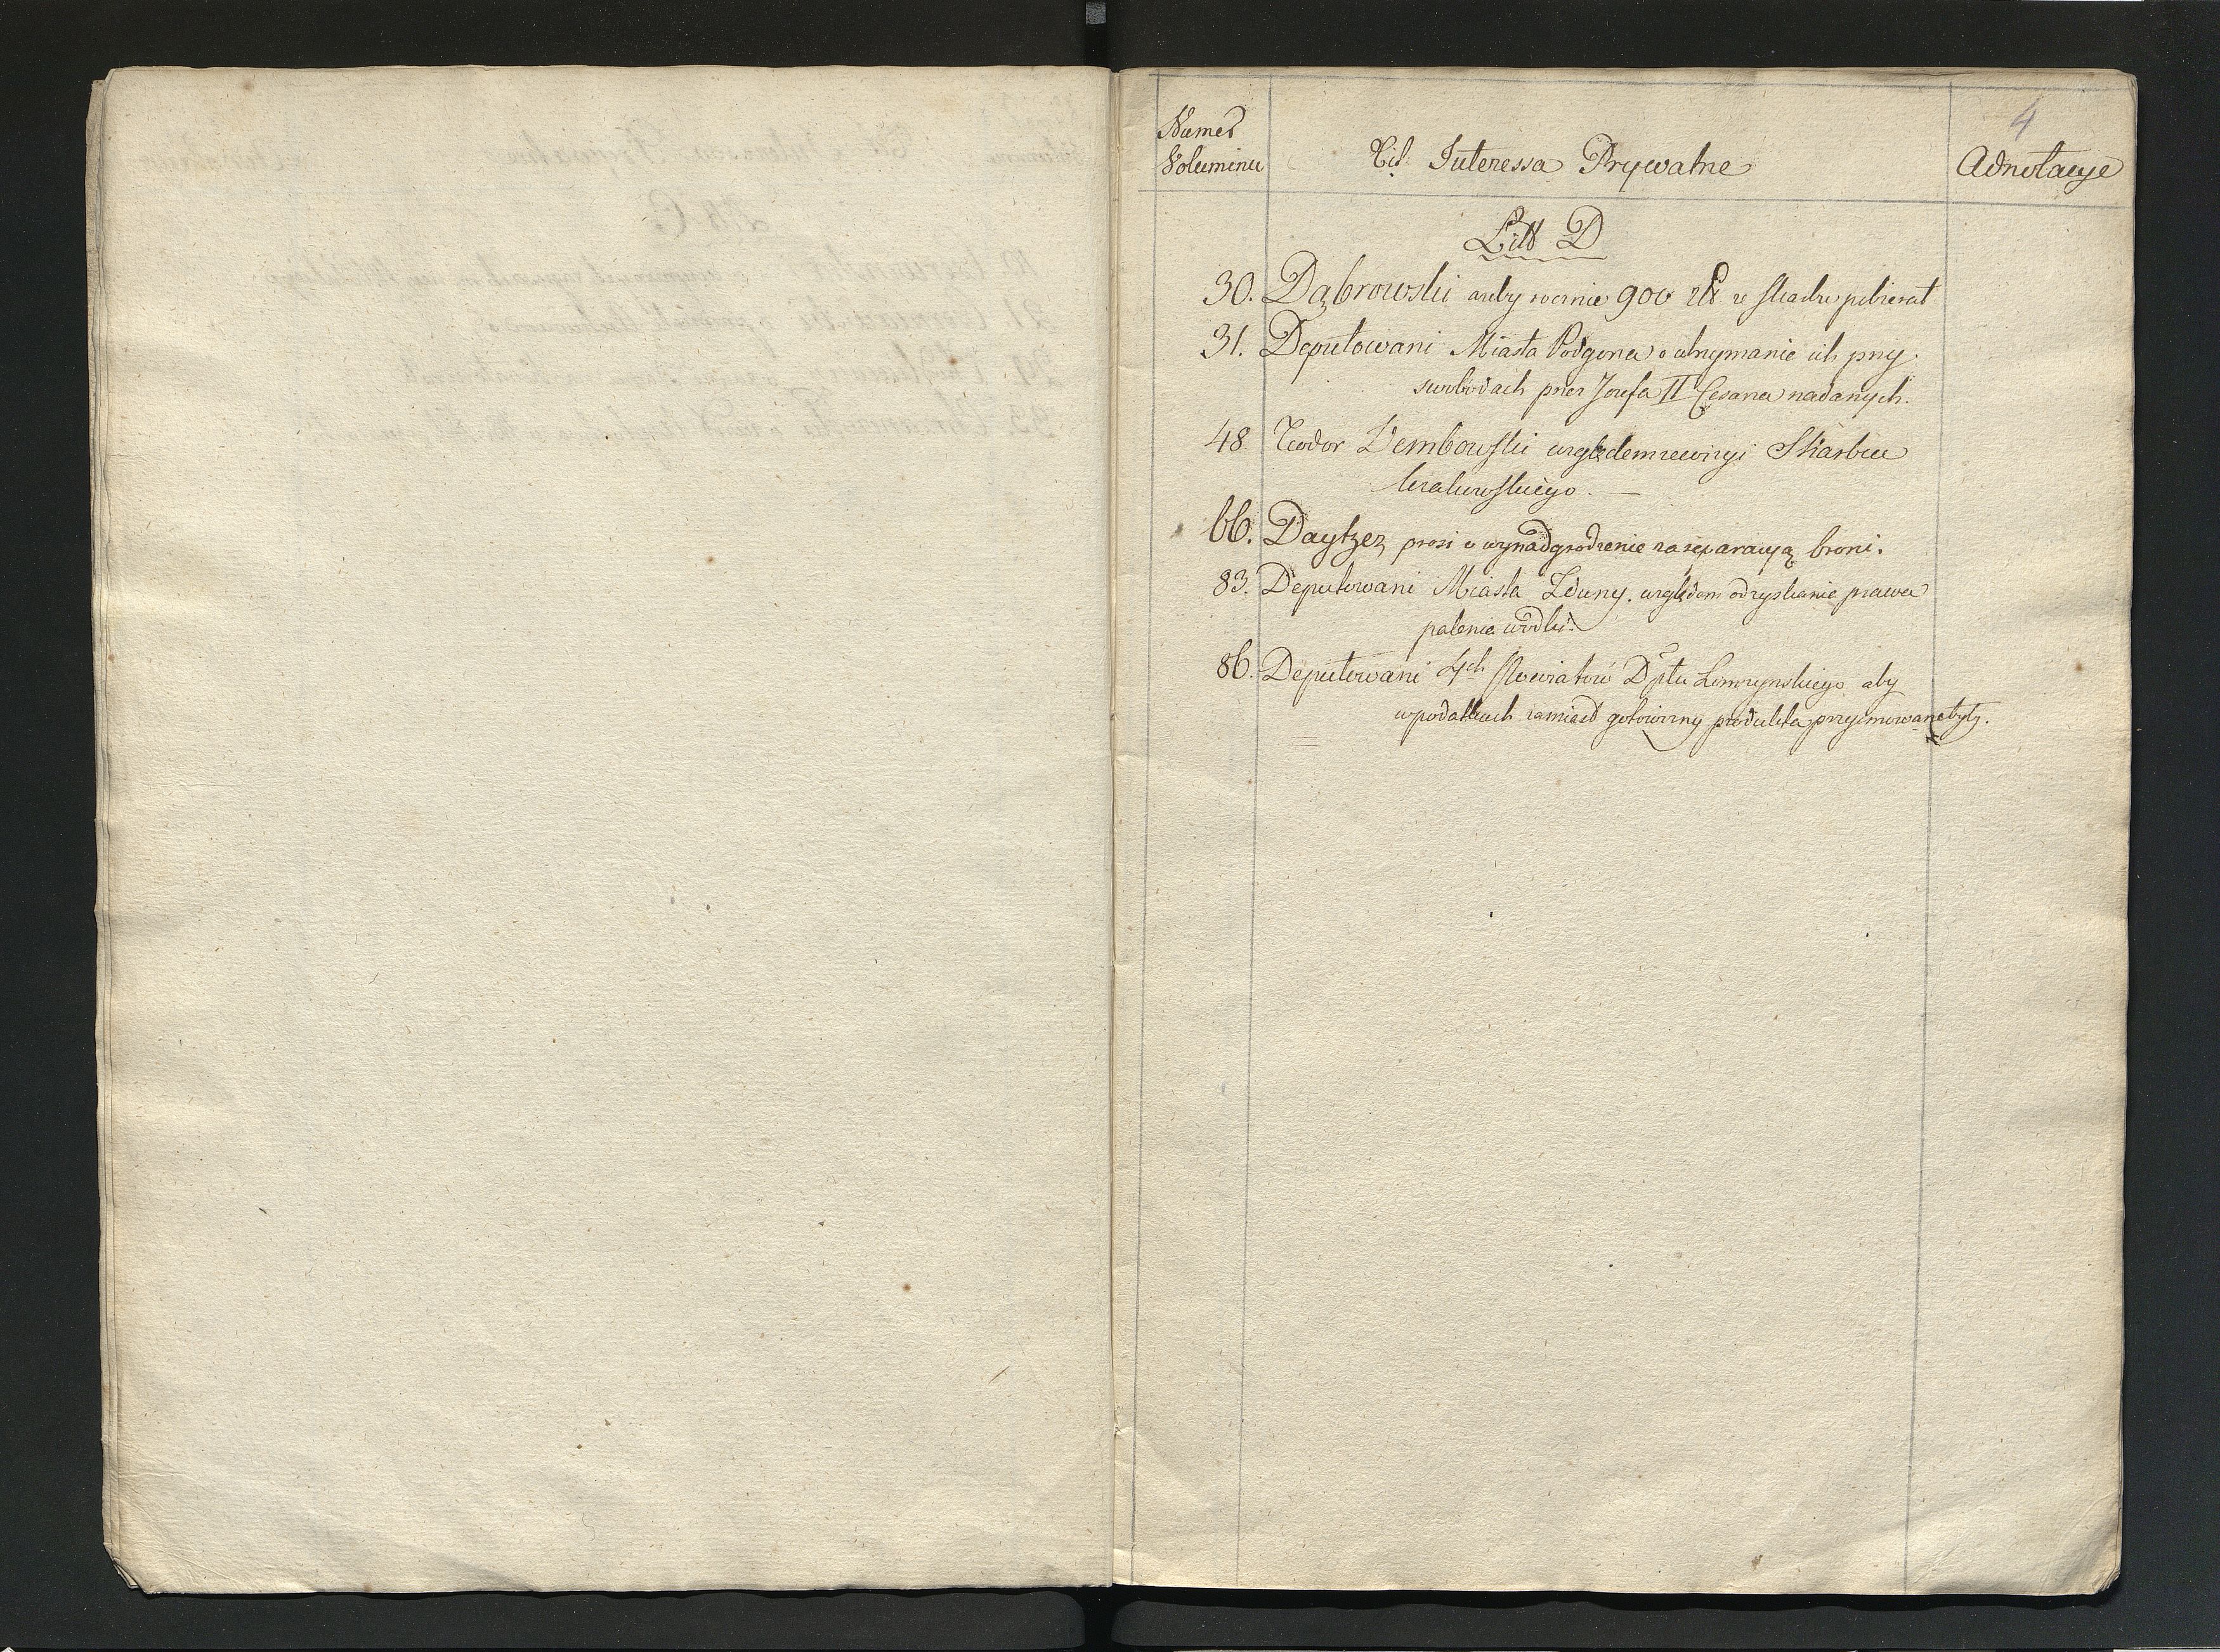 4
Numer
Voluminu
Tit. Interessa Prywatne
Adnotacye
Litt D
30. Dąbrowski azeby rocznie 900 zł ze skarbu pobierał
31. Deputowani Miasta Podgorza o utrzymanie ich przy
swobodach przez Jozefa II Cesarza nadanych.
48 Teodor Dembowski względem rewizyi Skarbcu
krakowskiego. —
66. Daytzez prosi o wynadgrodzenie za reparacyą broni.
83. Deputowani Miasta Zduny. względem odzyskanie prawa
palenie wodki.
86. Deputowani 4ch Powiatow Dptu Lomzynskiego aby
w podatkach zamiast gotowizny produkta przyimowane były.